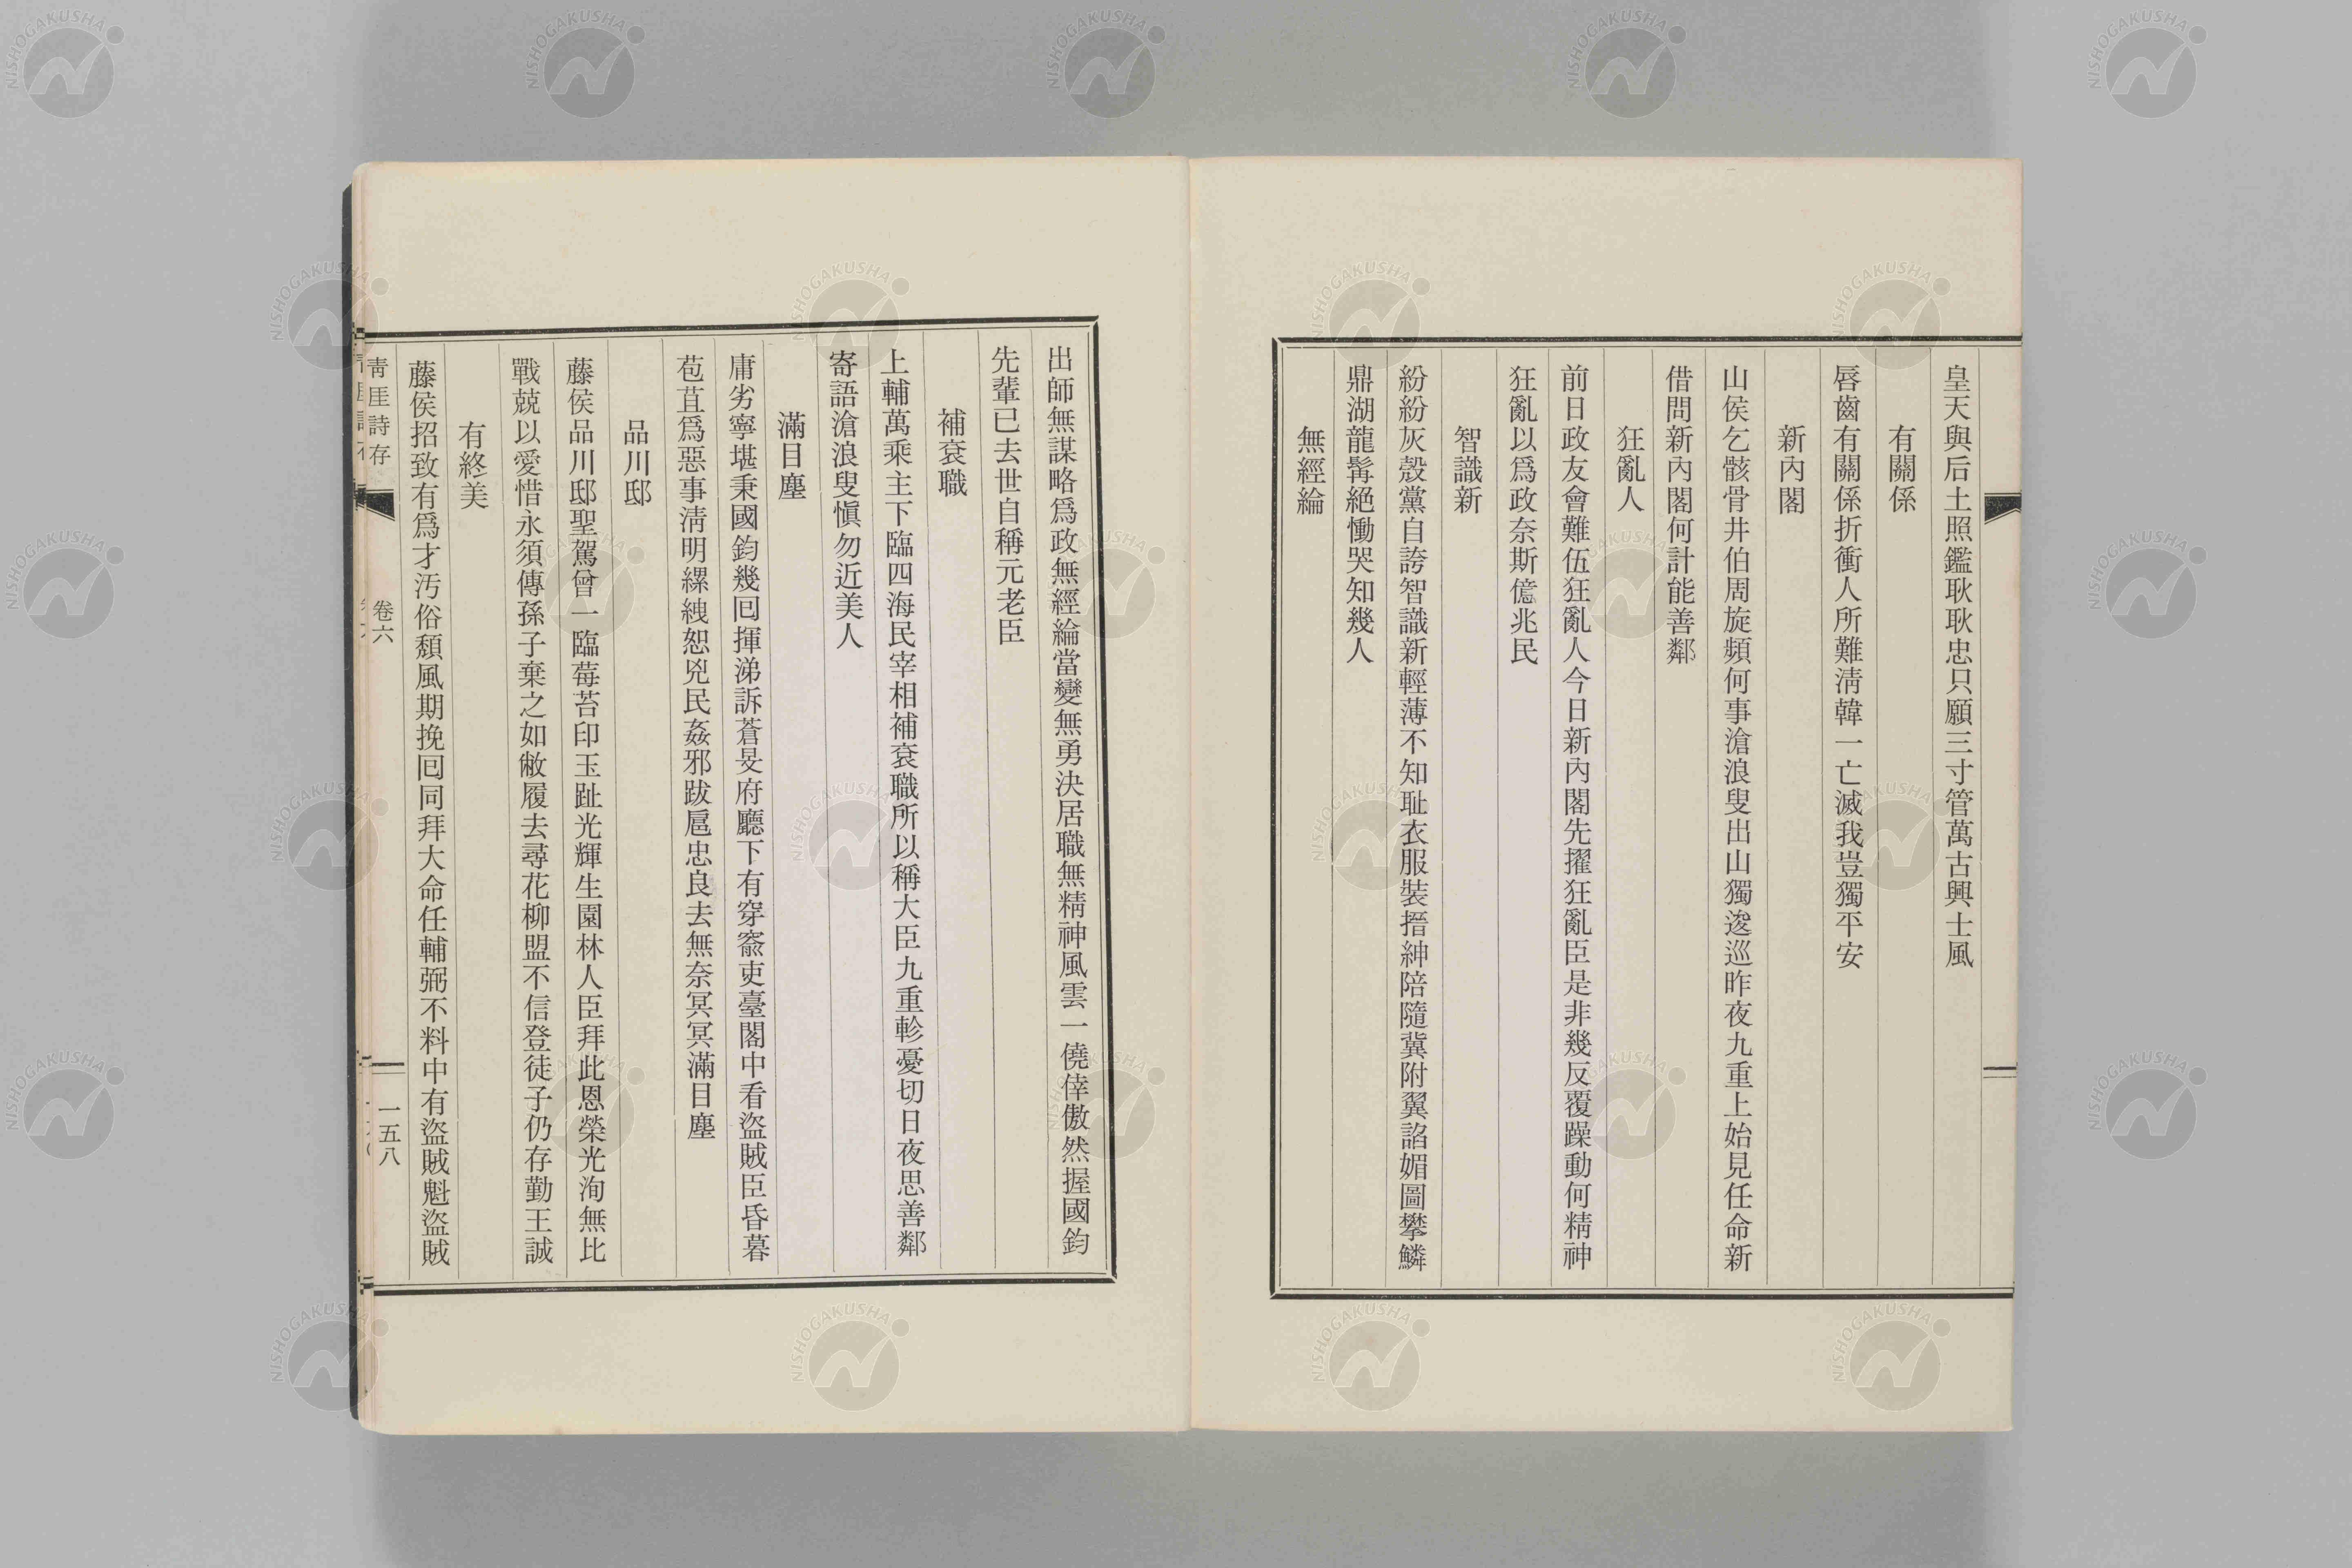 皇天與后土照鑑耿耿忠只願三寸管萬古興士風
有關係
唇齒有關係折衝人所難淸韓一亡滅我豈獨平安
新內閣
山侯乞骸骨井伯周旋頻何事滄浪叟出山獨逡巡昨夜九重上始見任命新
借問新內閣何計能善鄰
狂亂人
前日政友會難伍狂亂人今日新內閣先擢狂亂臣是非幾反覆躁動何精神
狂亂以爲政奈斯億兆民
智識新
紛紛灰殼黨自誇智識新輕薄不知耻衣服裝搢紳陪隨冀附翼諂媚圖攀鱗
鼎湖龍髯絕慟哭知幾人
無經綸
出師無謀略爲政無經綸當變無勇決居職無精神風雲一僥倖傲然握國鈞
先輩已去世自稱元老臣
補袞職
上輔萬乘主下臨四海民宰相補袞職所以稱大臣九重軫憂切日夜思善鄰
寄語滄浪叟愼勿近美人
滿目塵
庸劣寧堪秉國鈞幾回揮涕訴蒼旻府廳下有穿窬吏臺閣中看盜賊臣昏暮
苞苴爲惡事淸明縲絏恕兇民姦邪跋扈忠良去無奈冥冥滿目塵
品川邸
藤侯品川邸聖駕曾一臨莓苔印玉趾光輝生園林人臣拜此恩榮光洵無比
戰兢以愛惜永須傳孫子棄之如敝履去尋花柳盟不信登徒子仍存勤王誠
有終美
藤侯招致有爲才汚俗頽風期挽回同拜大命任輔弼不料中有盜賊魁盜賊
靑厓詩存
卷六
一五八
NISHOGAKUSHA